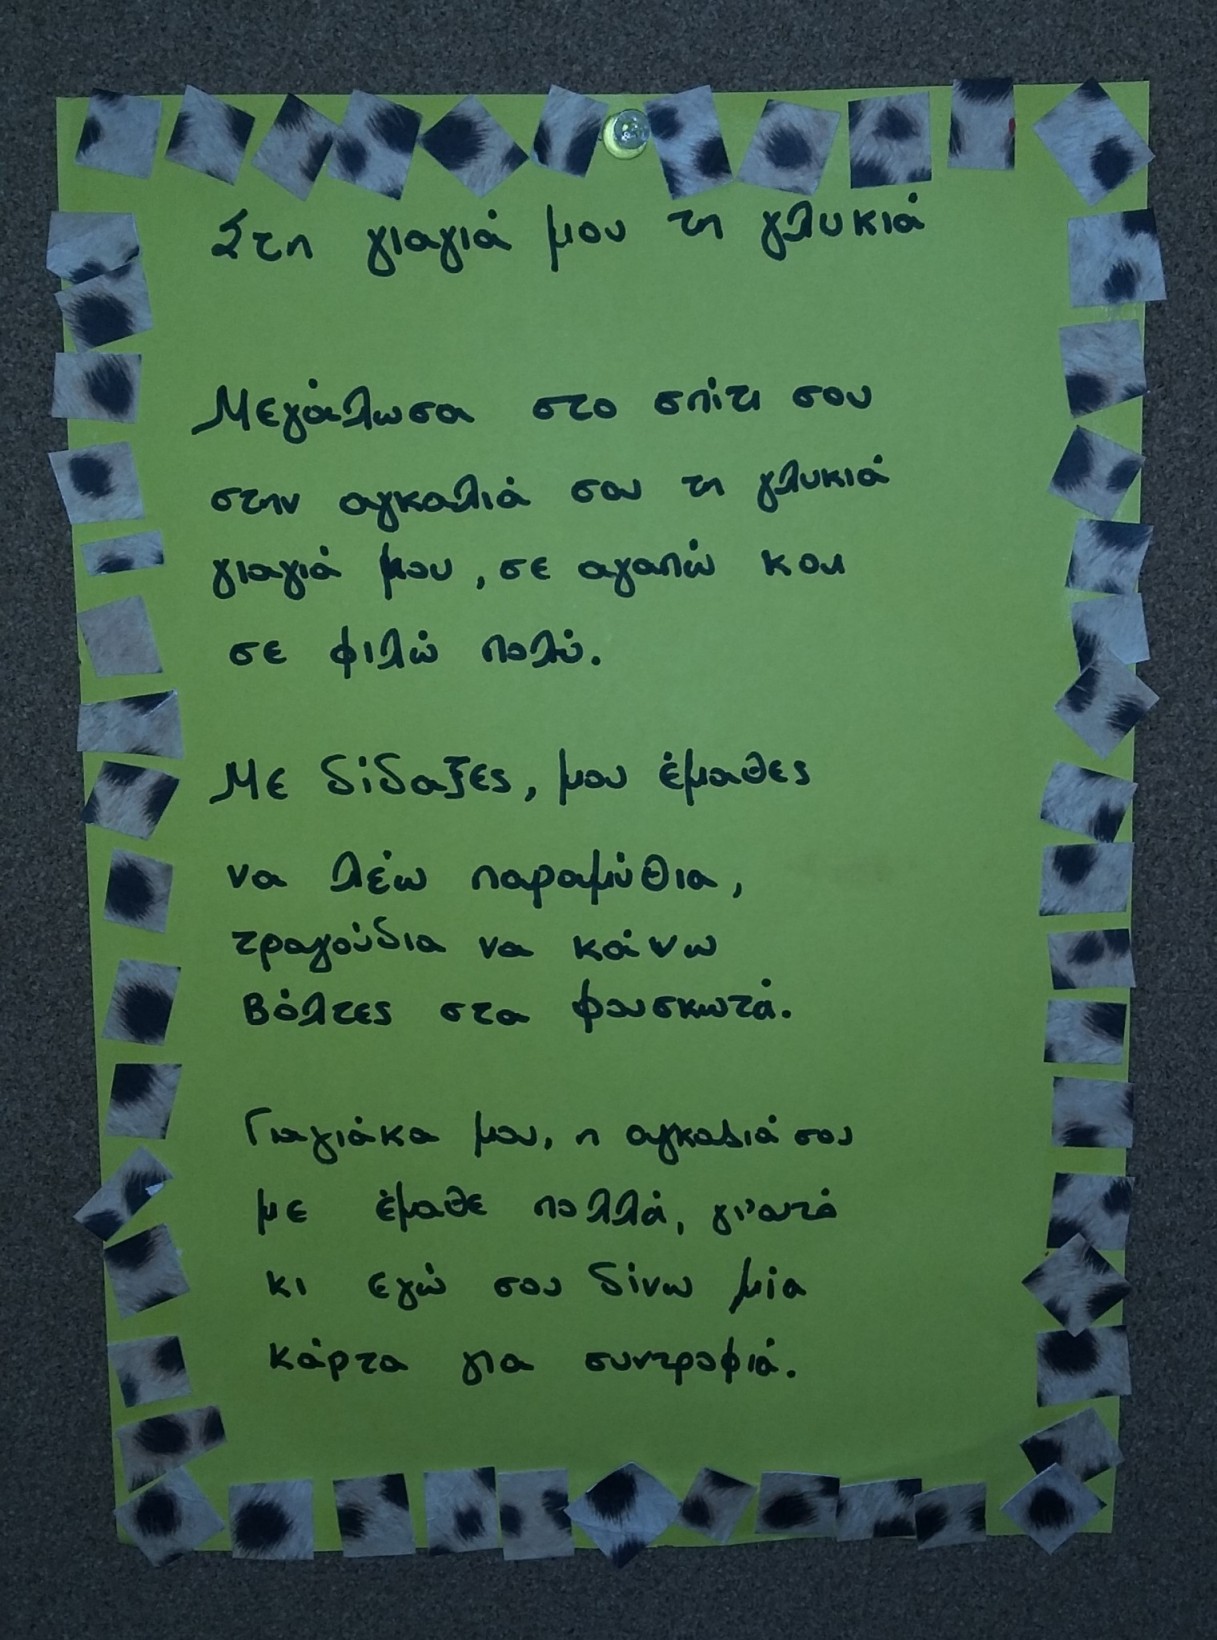 Στη γιαγιά μου τη γλυκιά
Μεγάλωσα στο σπίτι σου
στην αγκαλιά σου τη γλυκιά
γιαγιά μου, σε αγαπώ και
σε φιλώ πολύ.
Με δίδαξες, μου έμαθες
να λέω παραμύθια,
τραγούδια να κάνω
βόλτες στα φουσκωτά.
Γιαγιάκα μου, η αγκαλιά σου
με έμαθε πολλά, γι'αυτό
κι εγώ σου δίνω μία
κάρτα για συντροφιά.